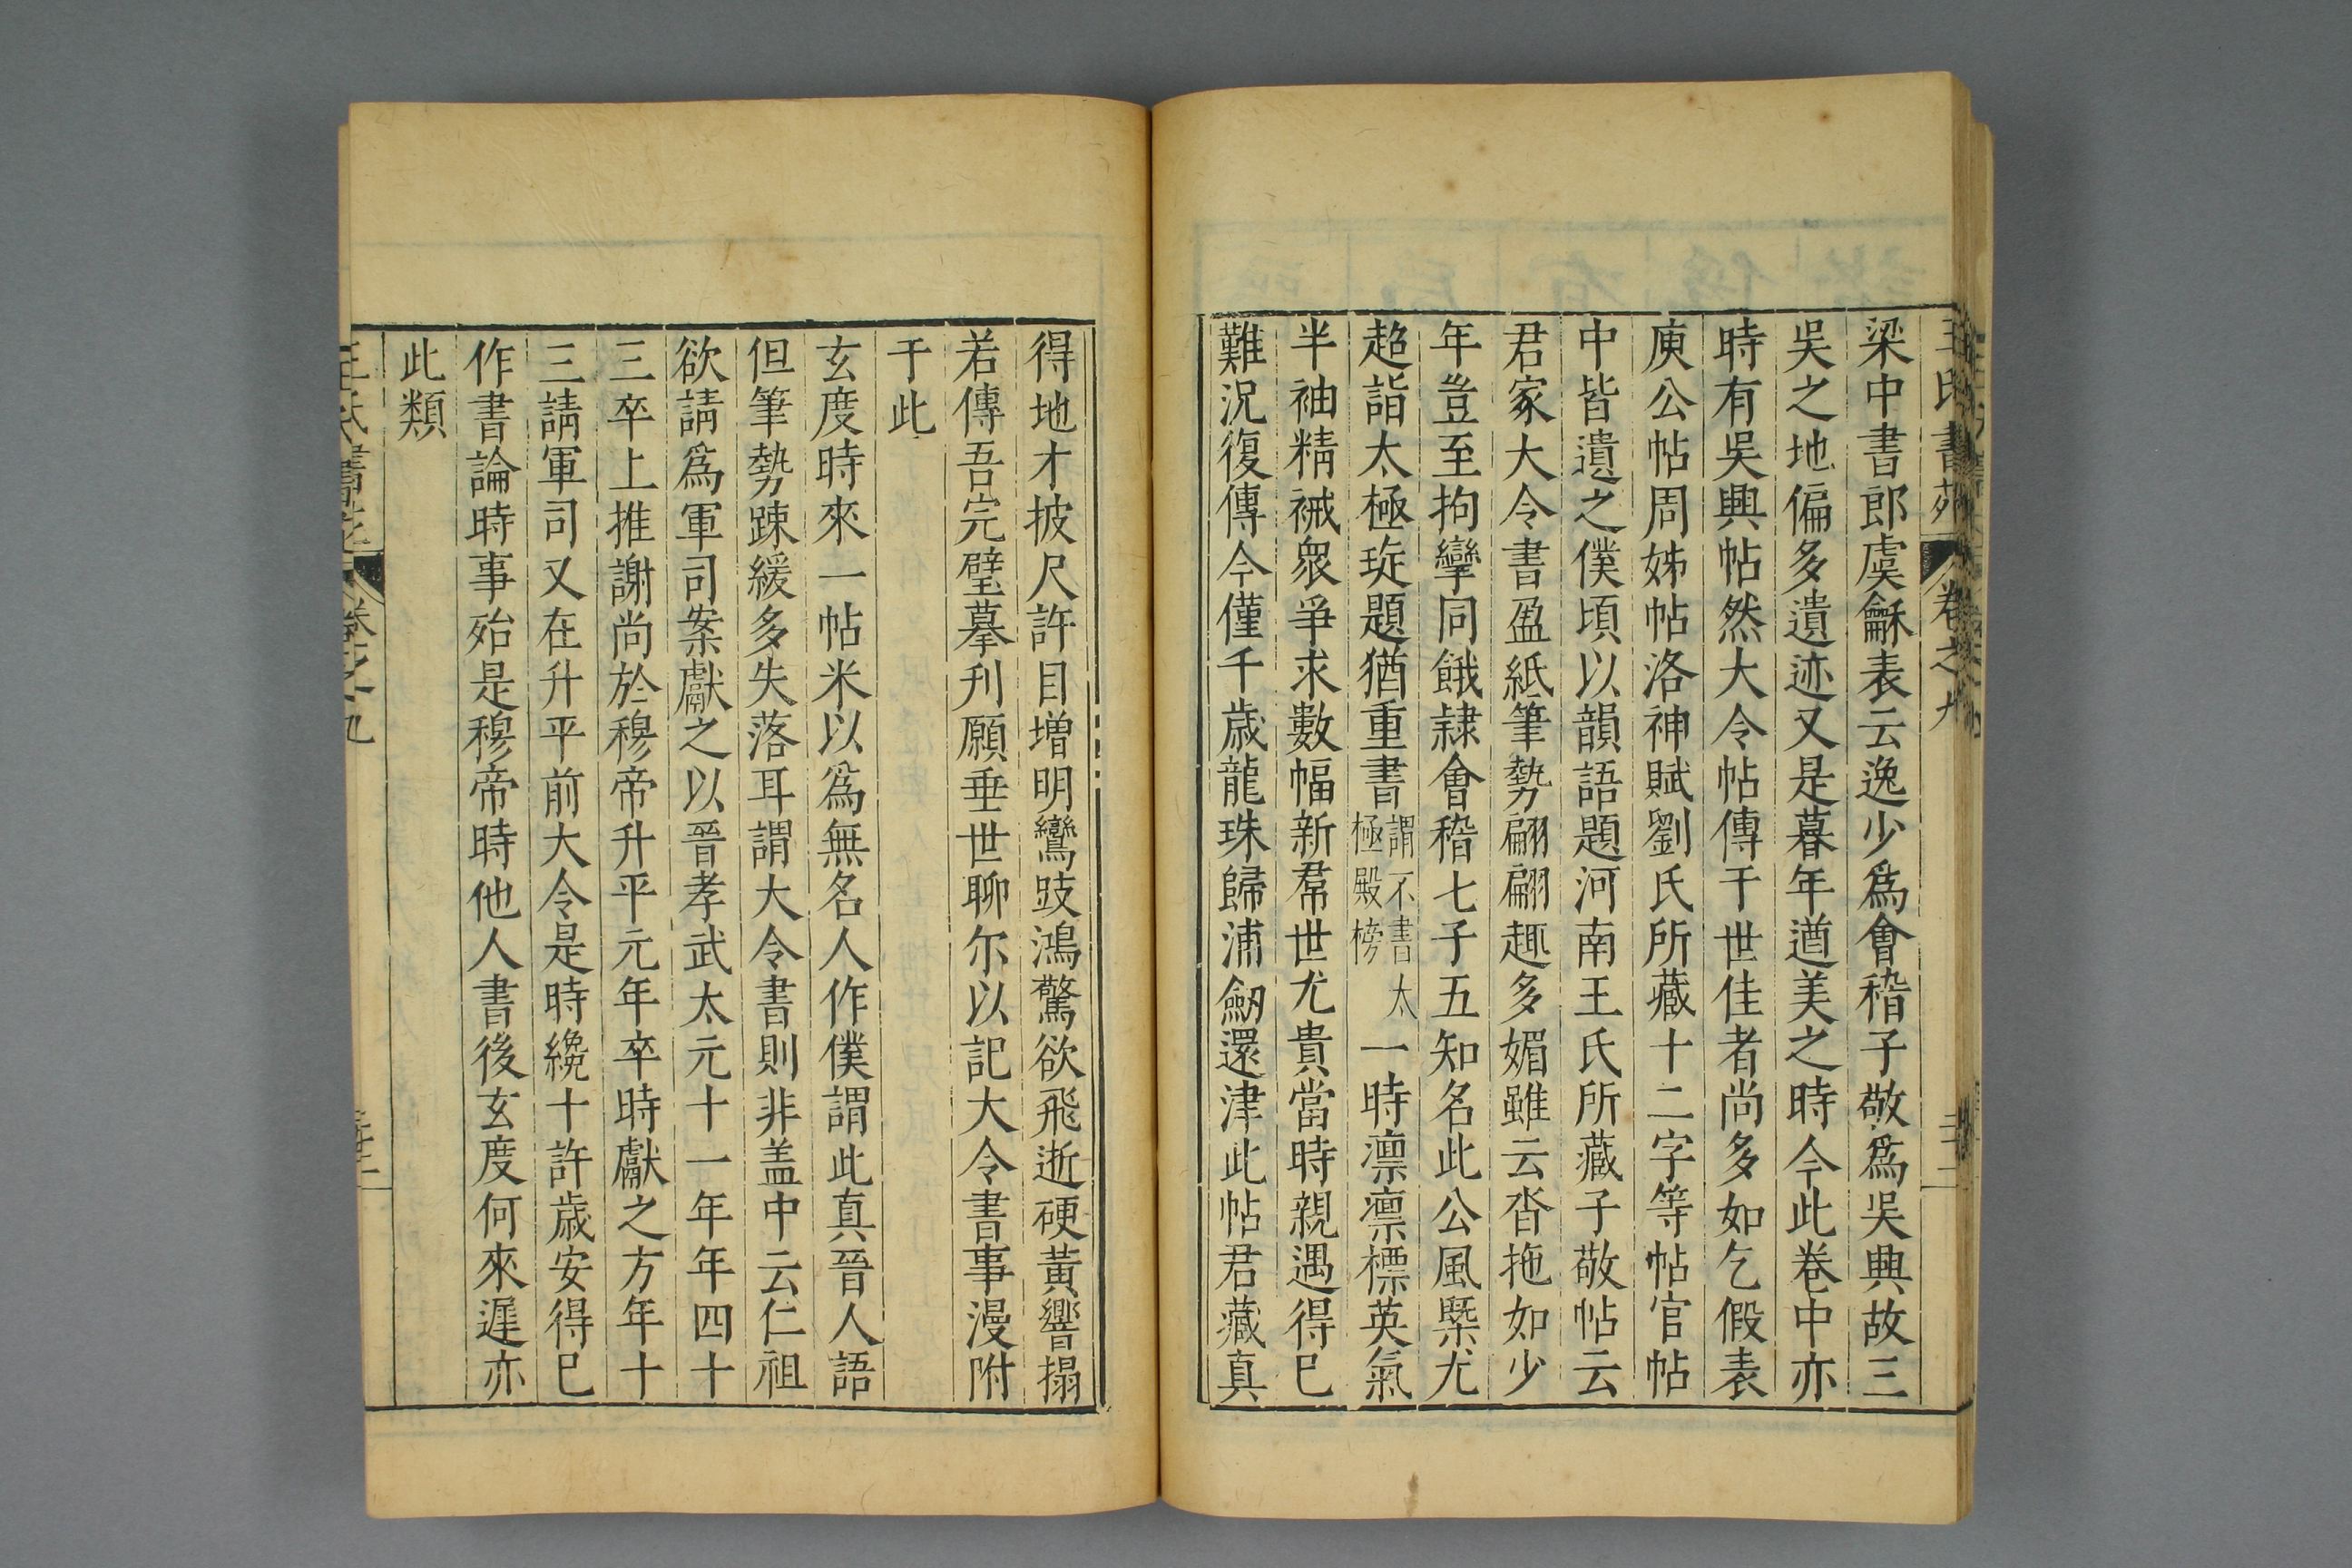 王氏書苑 卷之九
梁中書郎虞龢表云逸少爲會稽子敬爲吳興故三
吳之地偏多遺迹又是暮年遒美之時今此卷中亦
時有吳興帖然大令帖傳于世佳者尚多如乞假表
庾公帖周姊帖洛神賦劉氏所藏十二字等帖官帖
中皆遺之僕頃以韻語題河南王氏所藏子敬帖云
君家大令書盈紙筆勢翩翩趣多媚雖云沓拖如少
年豈至拘攣同餓隸會稽七子五知名此公風槩尤
超詣太極琁題猶重書謂不書太極殿榜一時凛凛標英氣
半袖精裓衆爭求數幅新帬世尤貴當時親遇得已
難況復傳今僅千歲龍珠歸浦劒還津此帖君藏真
得地才披尺許目增明鸞跂鴻驚欲飛逝硬黃響搨
若傳吾完璧摹刋願垂世聊尔以記大令書事漫附
于此
玄度時來一帖米以爲無名人作僕謂此真晉人語
但筆勢踈緩多失落耳謂大令書則非盖中云仁祖
欲請爲軍司案獻之以晉孝武太元十一年年四十
三卒上推謝尚於穆帝升平元年卒時獻之方年十
三請軍司又在升平前大令是時纔十許歲安得已
作書論時事殆是穆帝時他人書後玄度何來遲亦
此類
王氏書苑 卷之九